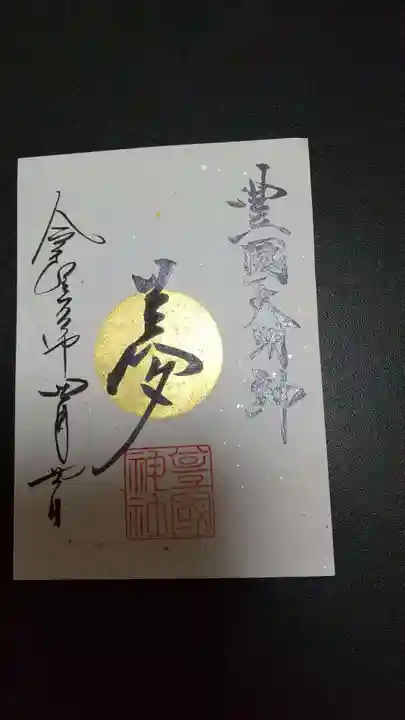 豊國大明神
夢
豊國神社
令和五年四月廿日